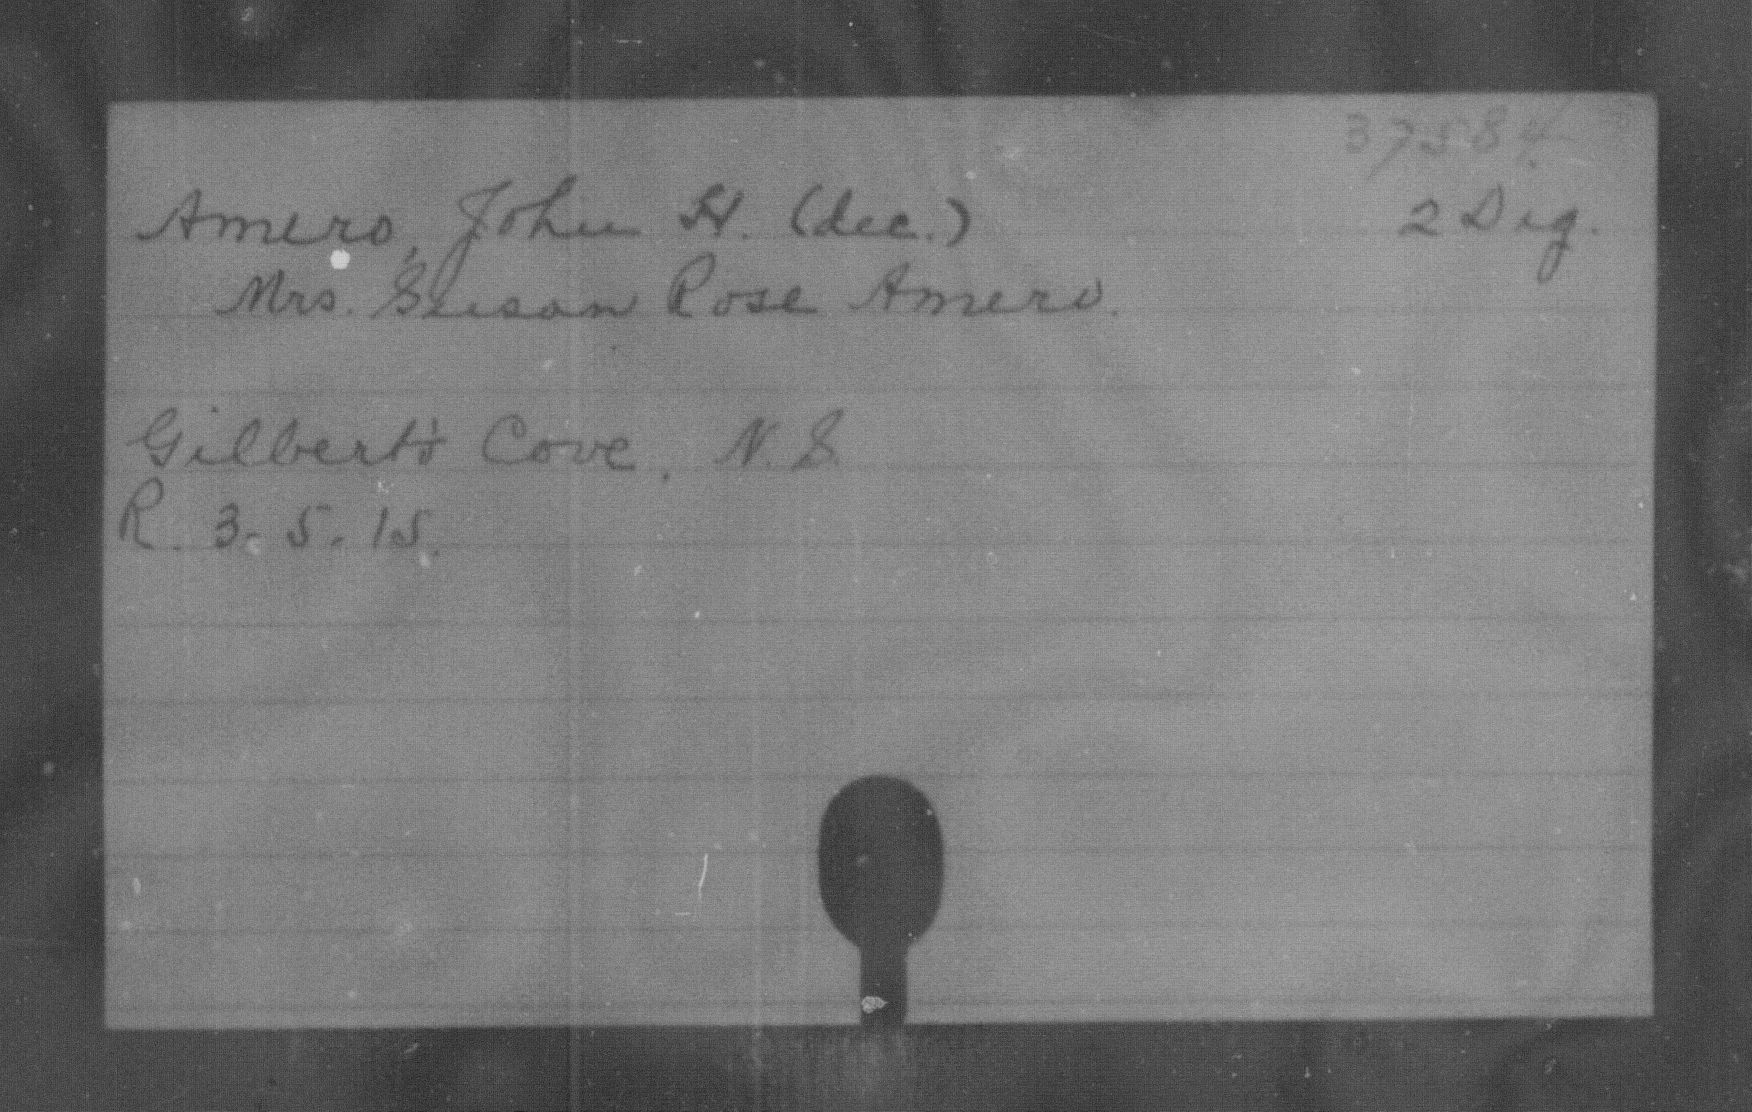 37584
Amero, John H. (dec.) 2 Dig.
Mrs. Susan Rose Amero.
Gilbert's Cove, N.S.
R. 3-5-15.